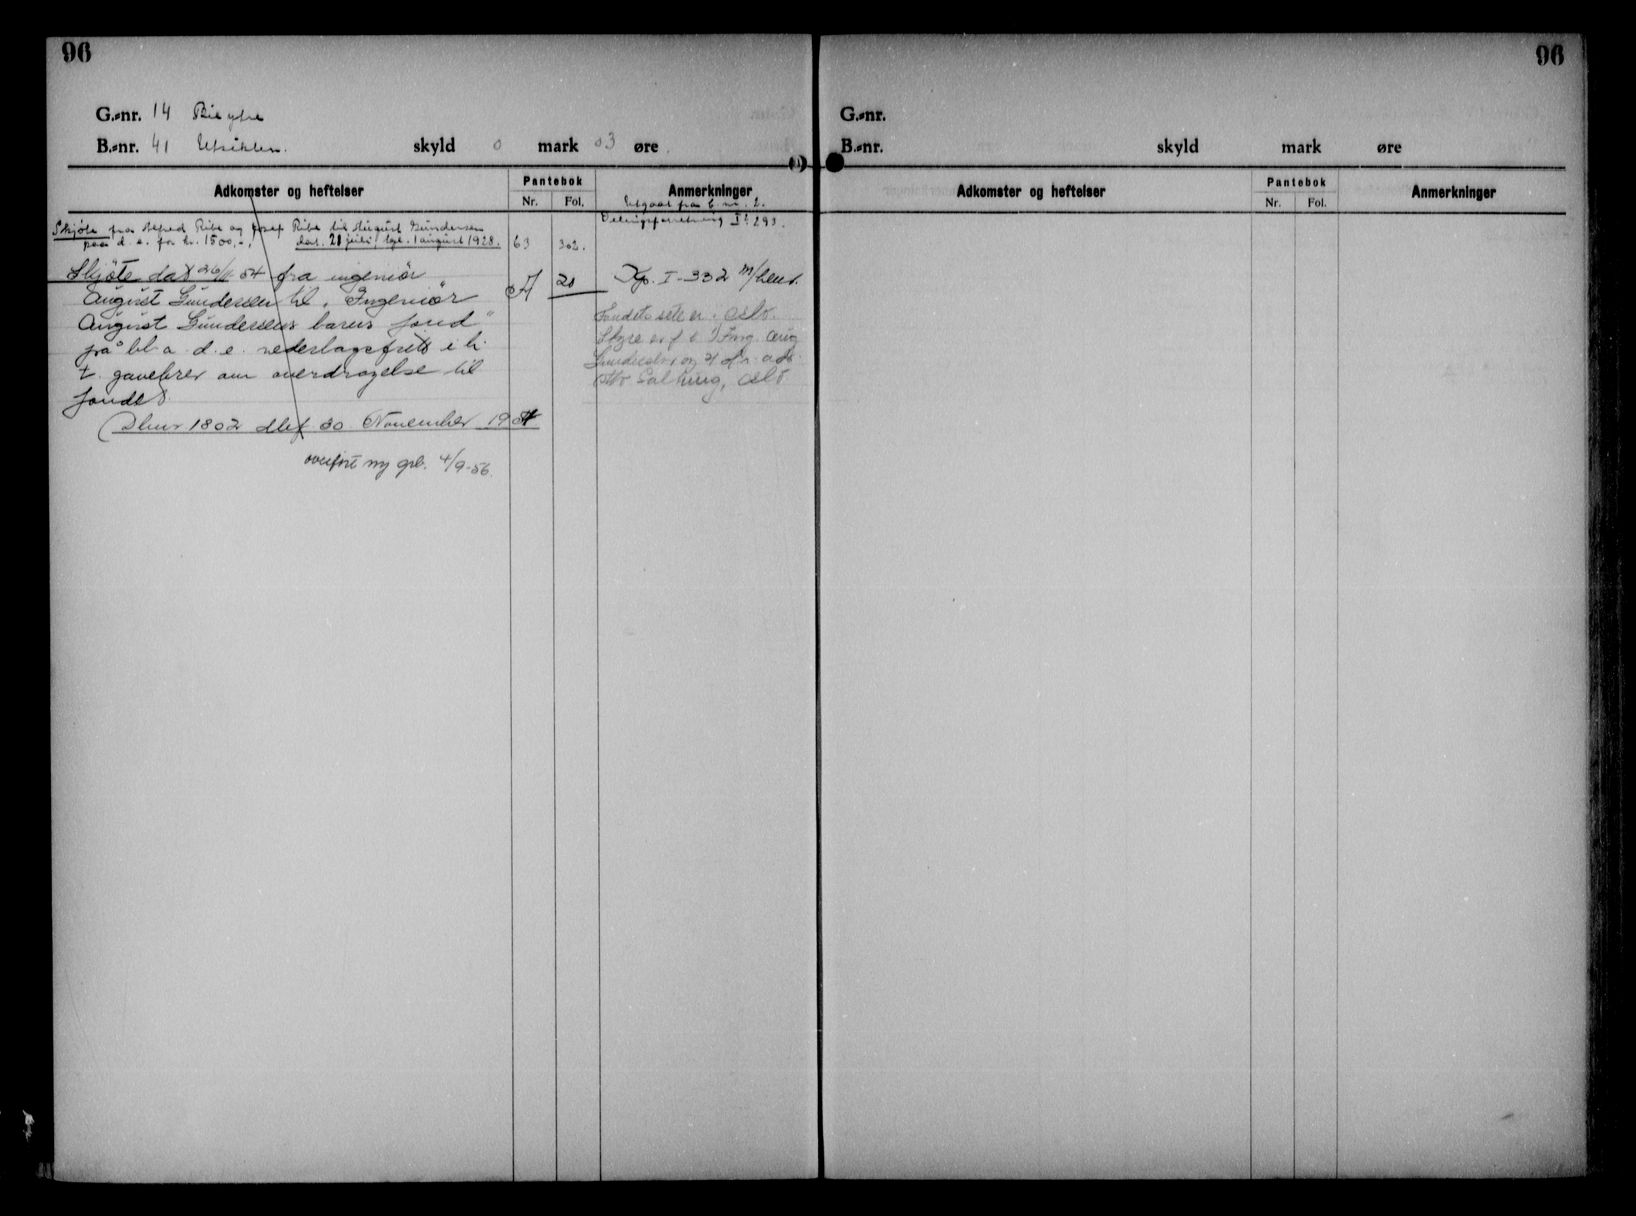 96
G.-nr. 14
B.-nr. 41 Utsikten. skyld 0 mark 03 øre
Adkomster og heftelser
Pantebok
Nr. Fol.
Anmerkninger
Utgaat fra b. nr. 2.
Delingsforretning I 293.
Skjøte fra Alfred Ribe og Josef Ribe til August Gundersen
paa d. e. for kr. 1500,-, dat. 28 juli, tgl. 1 august 1928. 63 302.
Skjöte dat 26/11 54 fra ingeniör
August Gundersen til "Ingeniör
August Gundersens barns fond"
på bl a d. e. vederlagsfritt i h.
t. gavebrev om overdragelse til
fondet.
1802 30 November 1954
A 20
Kp. I-332
Fondets sete er Oslo.
Styre er f. t. 1) Ing. Aug
Gundersen og 2)
Oslo
overført ny grb. 4/9-56.
96
G.-nr.
B.-nr. skyld mark øre
Adkomster og heftelser
Pantebok
Nr. Fol.
Anmerkninger